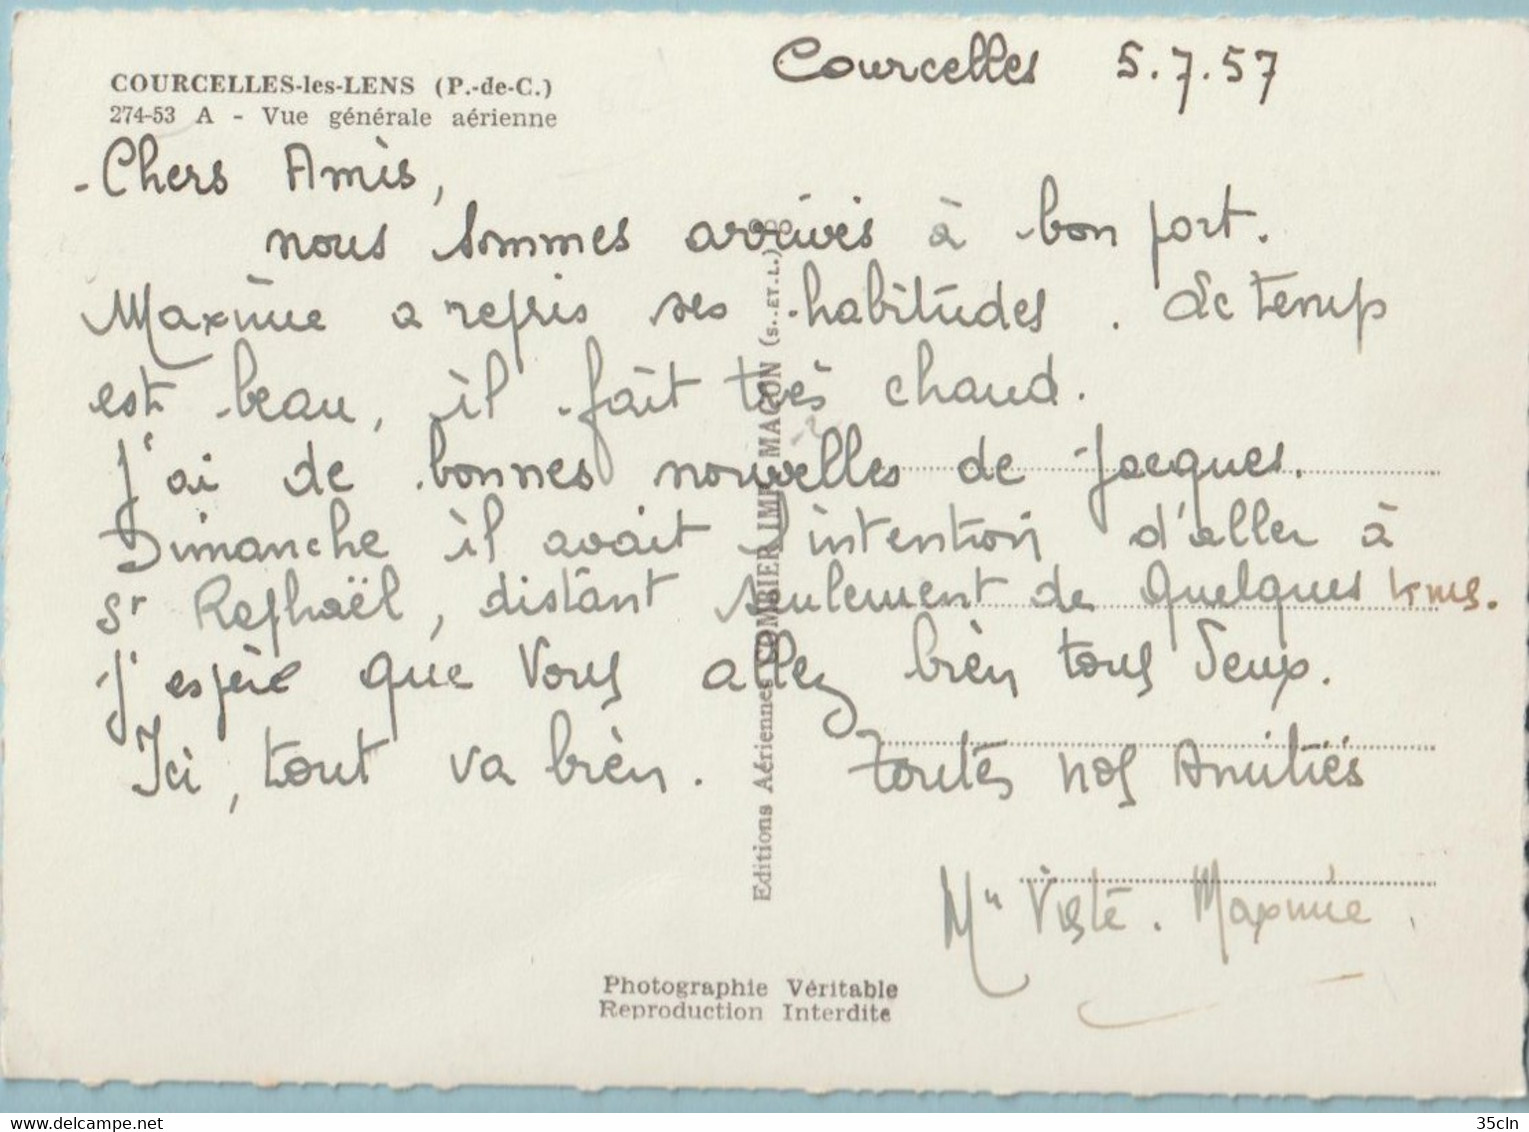 COURCELLES-les-LENS (P.-de-C.)
274-53 A - Vue générale aérienne
Courcelles 5.7.57
- Chers Amis,
nous sommes arrivés à bon port.
Maxime a repris ses habitudes. Le temps
est beau, il fait très chaud.
J'ai de bonnes nouvelles de Jacques.
Dimanche il avait l'intention d'aller à
St Raphaël, distant seulement de quelques kms.
J'espère que vous allez bien tous deux.
Ici, tout va bien. Toutes nos Amitiés
Viste. Maxime
Editions Aériennes COMBIER IMP. MACON (S.-ET-L.)
Photographie Véritable
Reproduction Interdite
delcampe.net
35cln